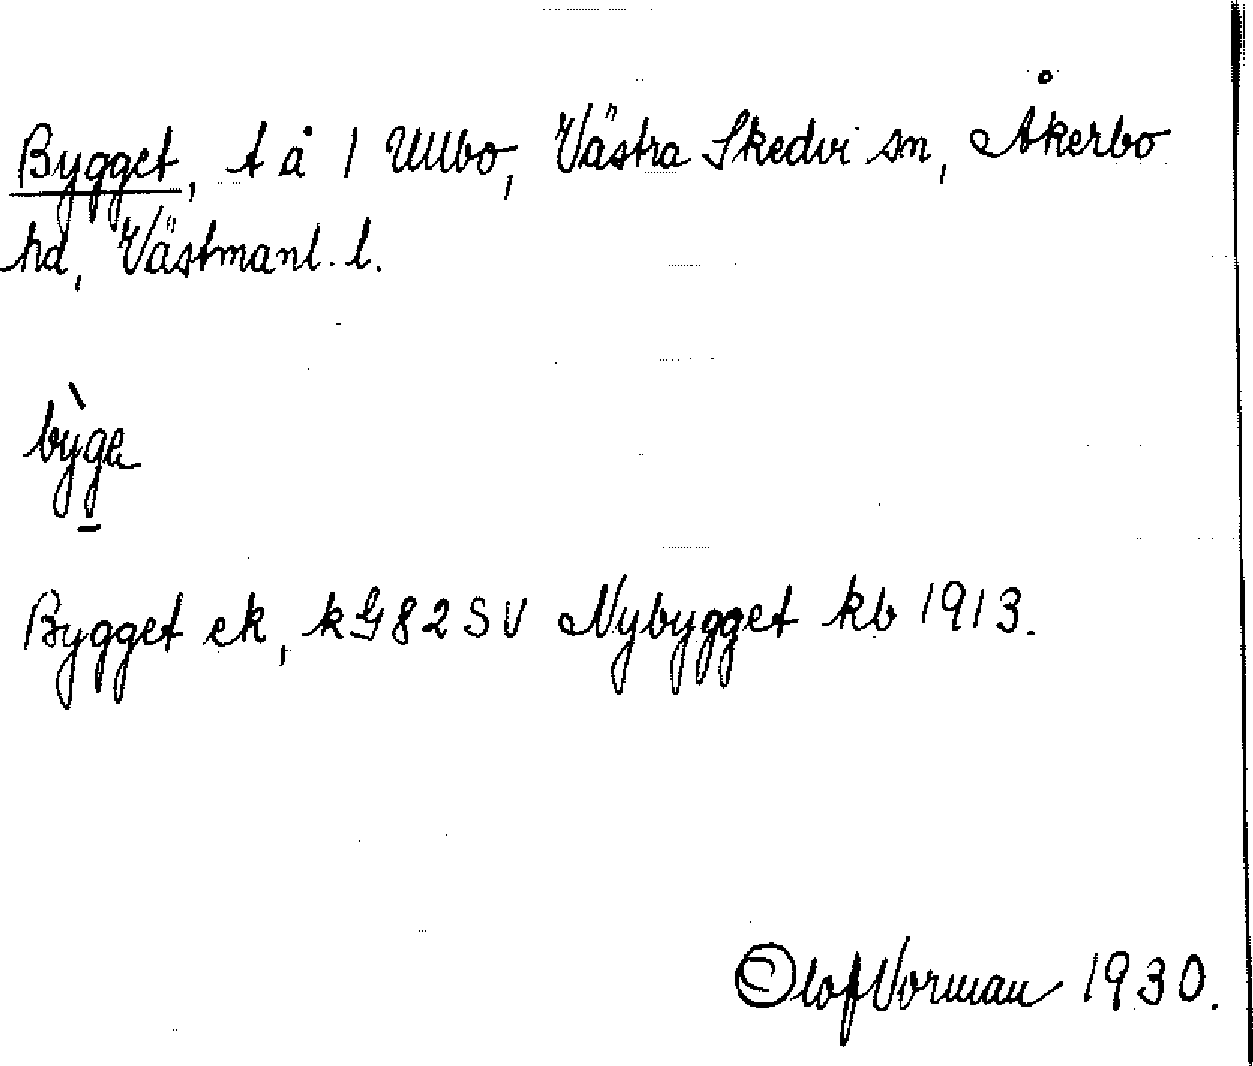 Bygget, t å 1 Ullbo, Västra Skedvi sn, Åkerbo
hd, Västmanl. l.
bỳge
Bygget ek, kG82SV Nybygget kb 1913.
Olof Vorman 1930.